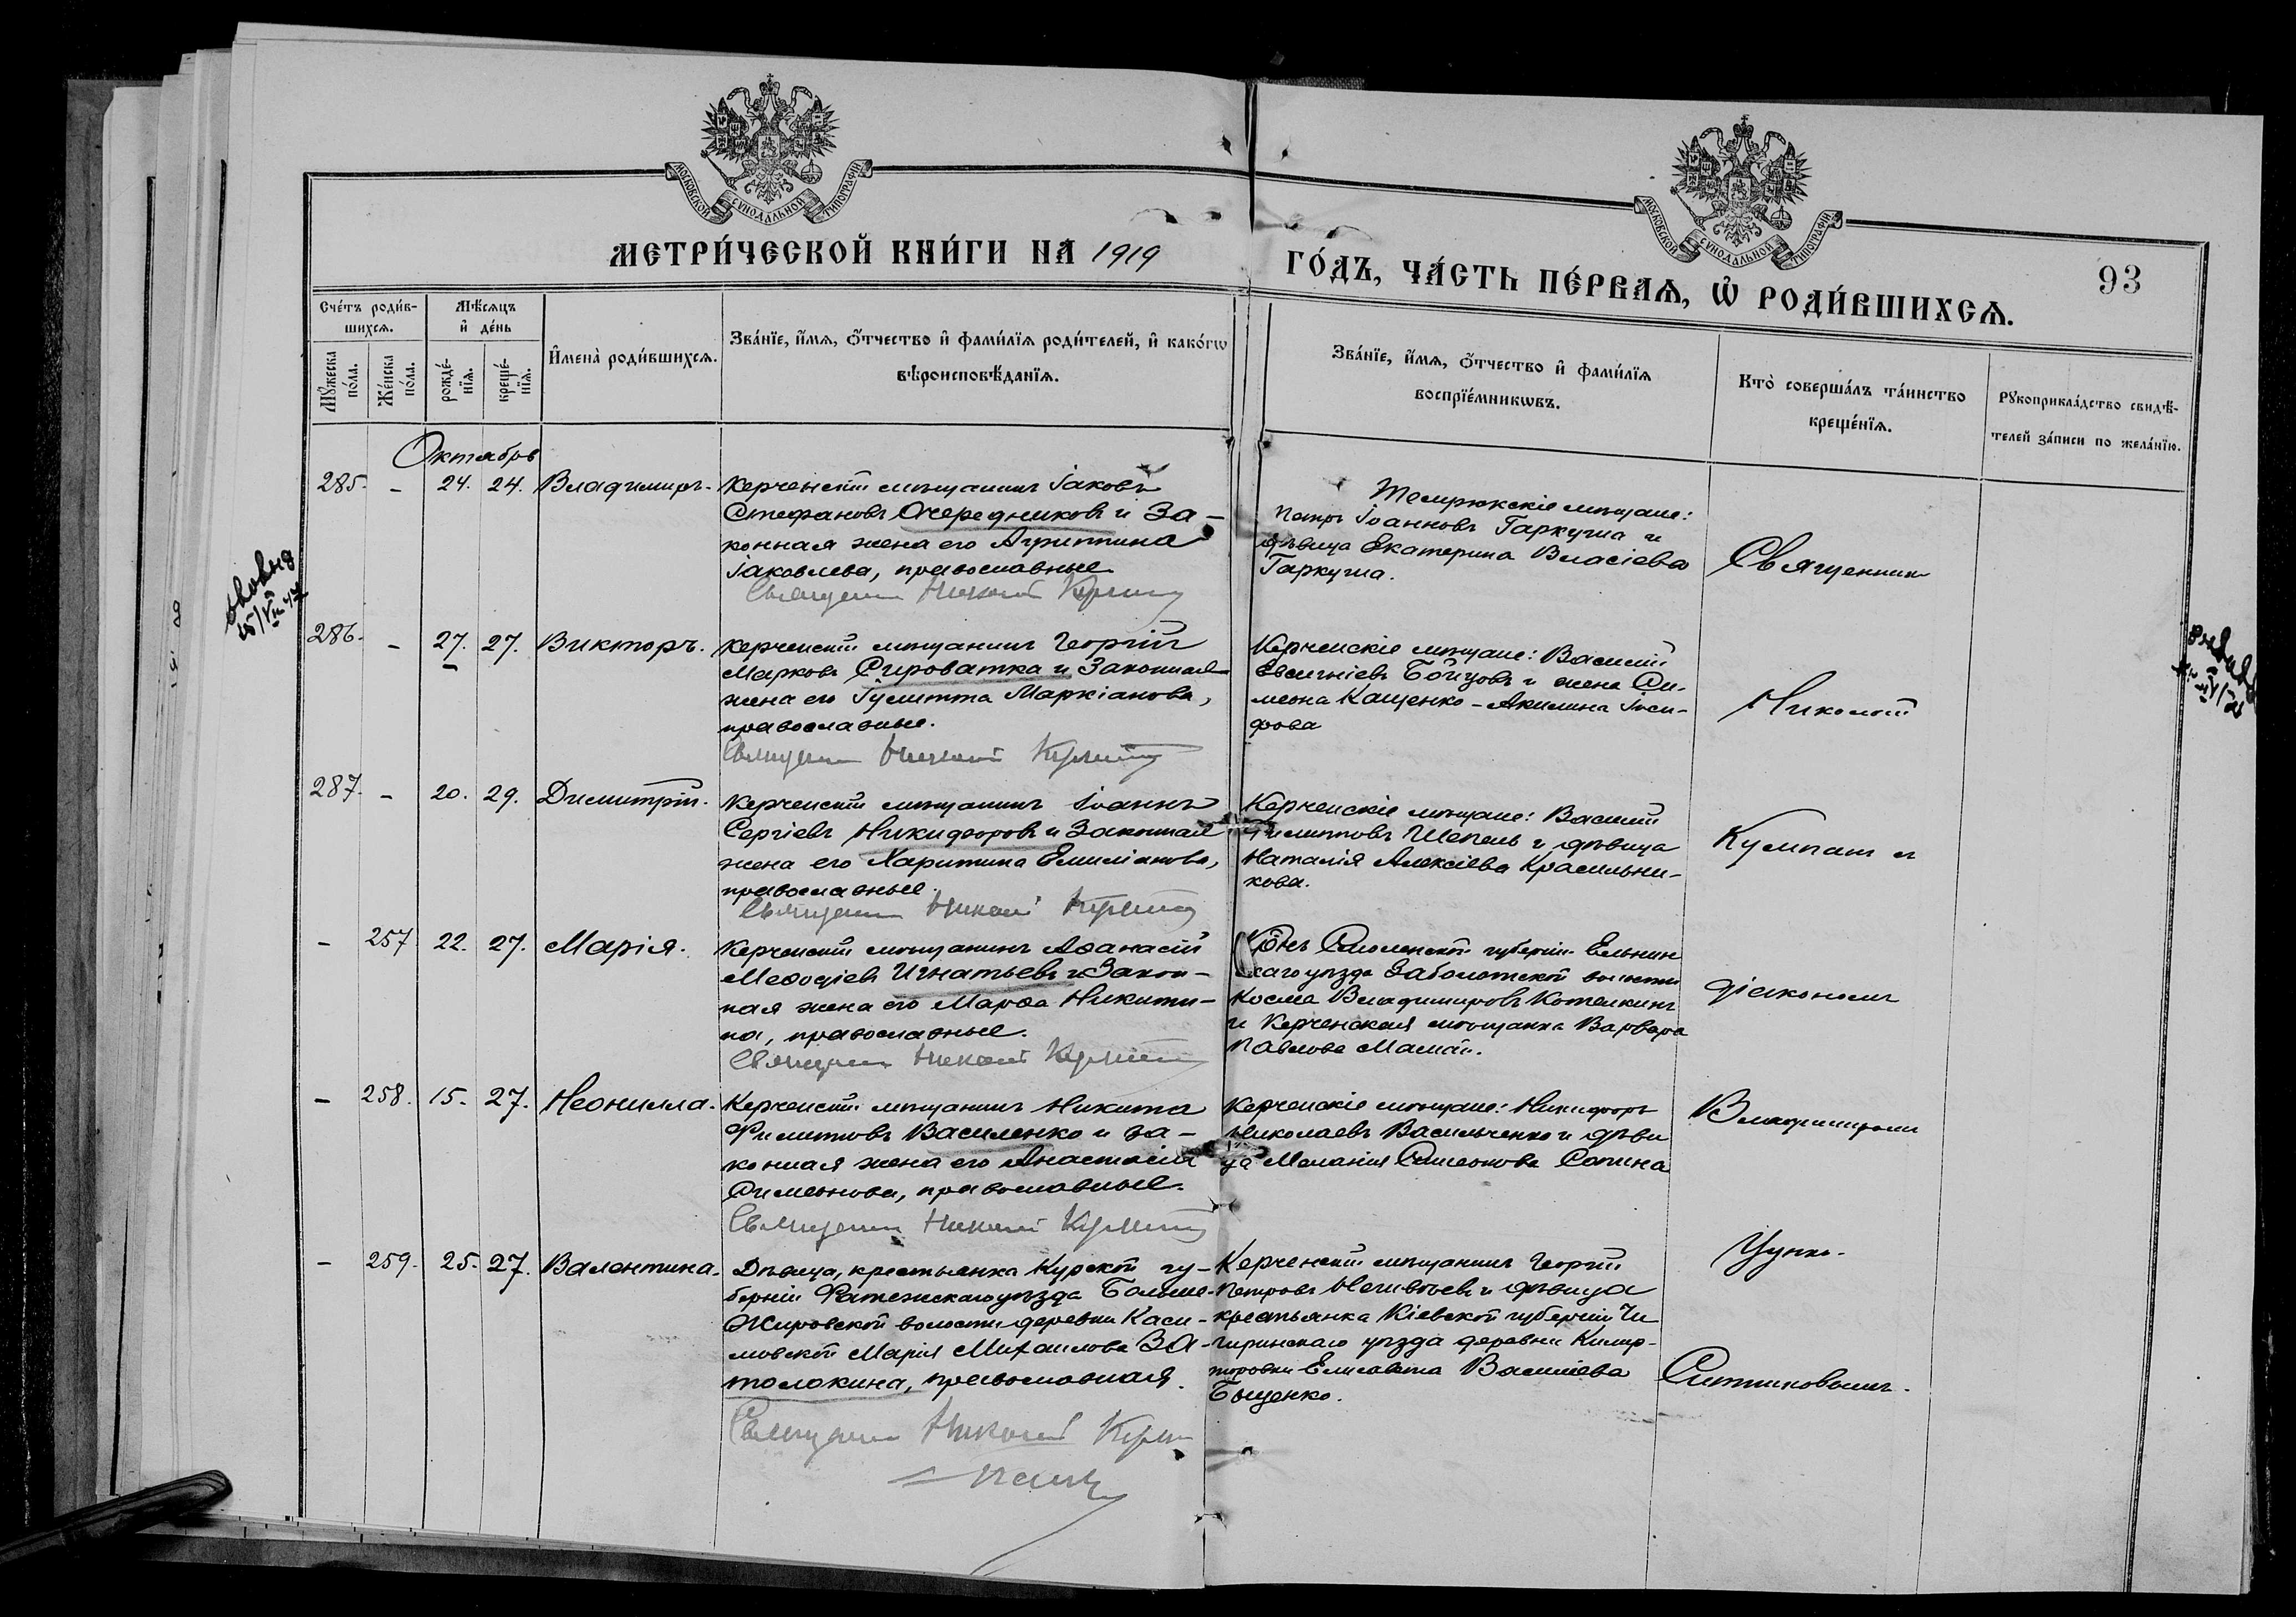 МОСКОВСКОЙ СУНОДАЛЬНОЙ ТИПОГРАФІИ
МОСКОВСКОЙ СУНОДАЛЬНОЙ ТИПОГРАФІИ
МЕТРИ́ЧЕСКОЙ КНИ́ГИ НА 1919
ГО́ДЪ, ЧА́СТЬ ПЕ́РВАѦ, Ѡ҆ РОДИ́ВШИХСѦ.
93
Сче́тъ роди́в-
шихсѧ.
Мꙋ́жеска
по́ла.
Же́нска
по́ла.
Мѣ́сѧцъ
и҆ де́нь
рожде́-
нїѧ.
креще́-
нїѧ.
И҆мена̀ роди́вшихсѧ.
Зва́нїе, и҆́мѧ, ѻ҆́тчество и҆ фами́лїѧ роди́телей, и҆ како́гѡ
вѣроисповѣ́данїѧ.
Зва́нїе, и҆́мѧ, ѻ҆́тчество и҆ фами́лїѧ
воспрїе́мникѡвъ.
Кто̀ соверша́лъ та́инство
креще́нїѧ.
Рꙋкоприкла́дство свидѣ́-
телей за́писи по жела́нїю.
Октябрь
285. - 24. 24. Владимиръ.
Керченскій мѣщанинъ Іаковъ
Стефановъ Очередниковъ и За-
конная жена его Агриппина
Іаковлева, православные.
Священник Николай
Темрюкскіе мѣщане:
Петръ Іоанновъ Гаркуша и
дѣвица Екатерина Власіева
Гаркуша.
Священник
286. - 27. 27. Викторъ.
Керченскій мѣщанинъ Георгій
Марковъ Сироватка и Законная
жена его Іулитта Маркіанова,
православные.
Священник Николай
Керченскіе мѣщане: Василій
Евсигніевъ Бойцовъ и жена Си-
меона Кащенко - Акилина Іоси-
фова
Николай
287. - 20. 29. Димитрій.
Керченскій мѣщанинъ Іоаннъ
Сергіевъ Никифоровъ и Законная
жена его Харитина Емиліанова,
православные.
Священник Николай
Керченскіе мѣщане: Василій
Филипповъ Шепель и дѣвица
Наталія Алексіева Красильни-
кова.
- 257 22. 27. Марія.
Керченскій мѣщанинъ Аѳанасій
Меѳодіевъ Игнатьевъ и Закон-
ная жена его Марѳа Никити-
на, православные.
Священник Николай
Смоленской губерніи Ельнин
скаго уѣзда Заболотской волости
Косма Владимировъ Котелкинъ
и Керченская мѣщанка Варвара
Павлова Мамай.
діакономъ
- 258. 15. 27. Неонилла.
Керченскій мѣщанинъ Никита
Филипповъ Василенко и за-
конная жена его Анастасія
Симеонова, православные.
Священник Николай
Керченскіе мѣщане: Никифоръ
Николаевъ Васильченко и дѣви
ца Меланія Симеонова Сапина
Владимиромъ
- 259. 25. 27. Валентина.
Дѣвица, крестьянка Курской гу-
берніи Фатежскаго уѣзда Больше-
Жировской волости деревни Каси-
мовской Марія Михаилова За-
толокина, православная.
Священник Николай
Керченскій мѣщанинъ Георгій
Петровъ и дѣвица
крестьянка Кіевской губерніи Чи
гиринскаго уѣзда деревни
Елисавета Василіева
Быценко.
Ситниковымъ.